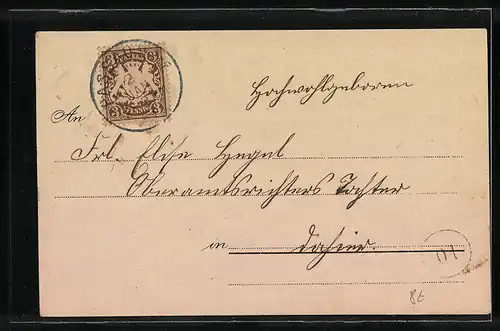 3 3
3 3
Hochwohlgeboren
An
Frl. Elise Hegel
Oberamtsrichters Tochter
in dahier.